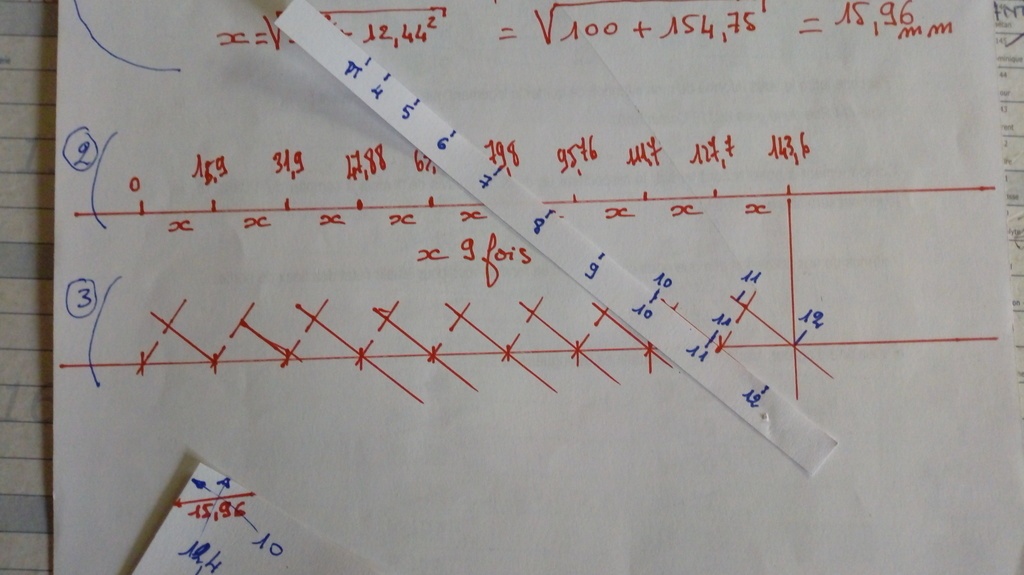 x = √ + 12,44² = √100 + 154,75 = 15,96 mm
PT 4 5 6 7 8 9 10 11 12
②
0 15,9 31,9 47,88 79,8 95,76 111,7 127,7 143,6
x x x x x x x x
x 9 fois
③
10 11 12
15,96
12,4 10